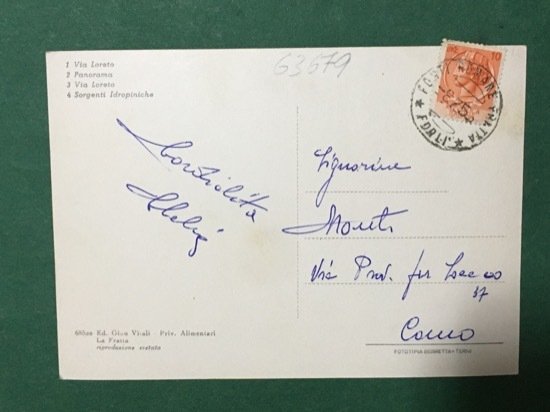 1 Via Loreto
2 Panorama
3 Via Loreto
4 Sorgenti Idropiniche
63679
10
FRATTA
* FORLI *
Cordialità
Signorine
Monti
Via Prov. per Lecco
37
Como
Ed. Gino Vitali - Priv. Alimentari
La Fratta
riproduzione vietata
FOTOTIPIA